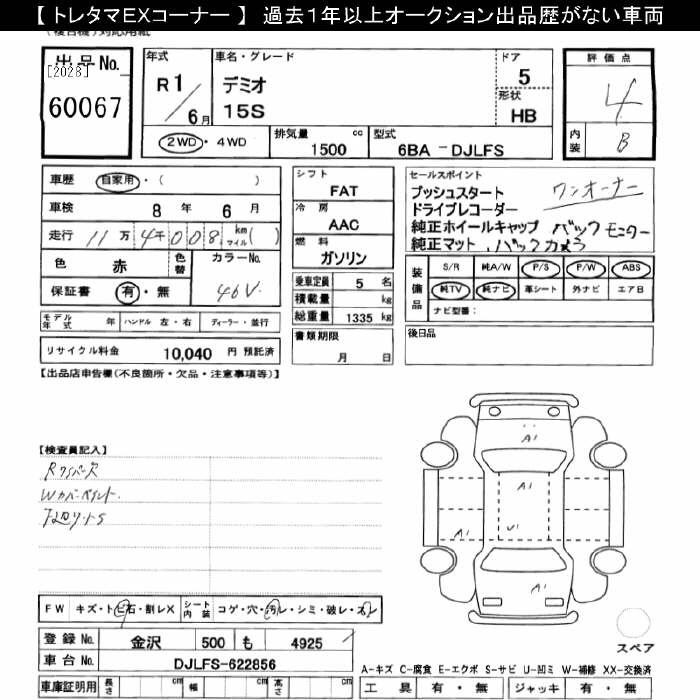 【 トレタマEXコーナー 】 過去1年以上オークション出品歴がない車両
(複合機)対応用紙
出品No. [2028] 60067
年式 R1/6月
車名・グレード デミオ 15S
ドア 5
形状 HB
評価点 4
内装 B
2WD・4WD
排気量 1500 cc
型式 6BA -DJLFS
車歴 自家用・( )
車検 8 年 6 月
走行 11万4千008 km マイル( )
色 赤 色替 カラーNo. 46V
保証書 有・無
モデル年式 年 ハンドル 左・右 ディーラー・並行
リサイクル料金 10,040 円 預託済
シフト FAT
冷房 AAC
燃料 ガソリン
乗車定員 5 名
積載量 kg
総重量 1335 kg
書類期限 月 日
セールスポイント
プッシュスタート ワンオーナー
ドライブレコーダー
純正ホイールキャップ バックモニター
純正マット バックカメラ
装備品 S/R 純A/W P/S P/W ABS
純TV 純ナビ 革シート 外ナビ エアB
ナビ型番:
後日品
【出品店申告欄(不良箇所・欠品・注意事項等)】
【検査員記入】
Wカバーペイント.
A1
A1
A1
U1
A1
FW キズ・トビ石・割レX シート内装 コゲ・穴・汚レ・シミ・破レ・スレ
登録No. 金沢 500 も 4925
車台No. DJLFS-622856
スペア
A-キズ C-腐食 E-エクボ S-サビ U-凹ミ W-補修 XX-交換済
車庫証明用 長さ cm 幅 cm 高さ cm
工具 有・無 ジャッキ 有・無